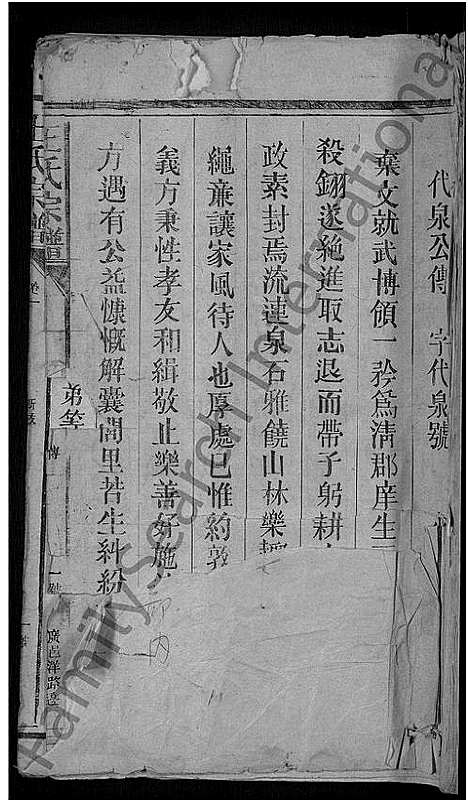 代泉公傳 字代泉號
棄文就武博領一衿為清郡庠生
殺鈃遂絶進取志退而帶子躬耕
政素封焉流連泉石雅饒山林樂
繩亷讓家風待人也厚處已惟約敦
義方秉性孝友和緝敬止樂善好施
方遇有公益慷慨解囊閭里苔生糾紛
王氏宗譜
傳
廣邑洋
FamilySearch International